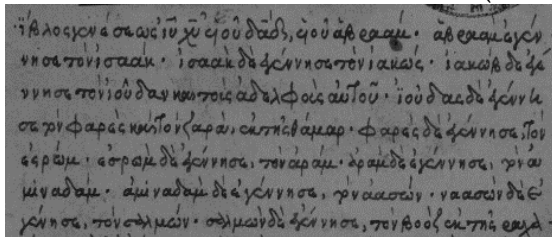 ΐβλος γενέσεως ἰῦ χῦ υἱοῦ δαδ, υἱοῦ ἀβραάμ · ἀβραὰμ ἐγέν
νησε τὸν ἰσαάκ · ἰσαὰκ δὲ ἐγέννησε τὸν ἰακώβ · ἰακὼβ δὲ ἐγέ
ννησε τὸν ἰούδαν καὶ τοὺς ἀδελφοὺς αὐτοῦ · ἰούδας δὲ ἐγέννη
σε τὸν φαρὲς καὶ τὸν ζαρά, ἐκ τῆς θάμαρ · φαρὲς δὲ ἐγέννησε, τὸν
ἐσρώμ · ἐσρὼμ δὲ ἐγέννησε, τὸν ἀράμ · ἀρὰμ δὲ ἐγέννησε, τὸν ἀ
μιναδάμ · ἀμιναδὰμ δὲ ἐγέννησε, τὸν ναασών · ναασὼν δὲ ἐ
γέννησε, τὸν σαλμών · σαλμὼν δὲ ἐγέννησε, τὸν βοὸζ ἐκ τῆς ραχά